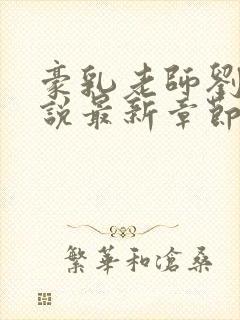 豪乳老師劉
說最新章節
繁華和滄桑